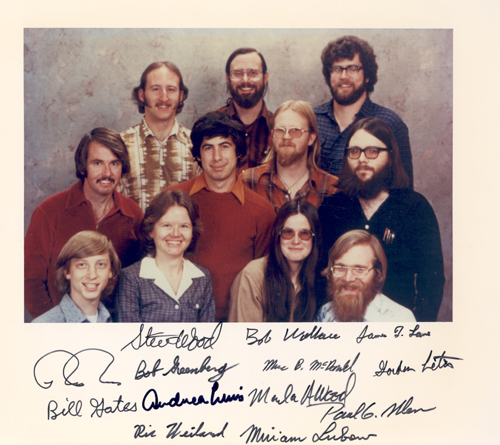 Steve Wood Bob Wallace James T. Lane
Bob Greenberg Marc B. McDonald Gordon Letwin
Bill Gates Andrea Lewis Marla Wood
Paul G. Allen
Ric Weiland Miriam Lubow